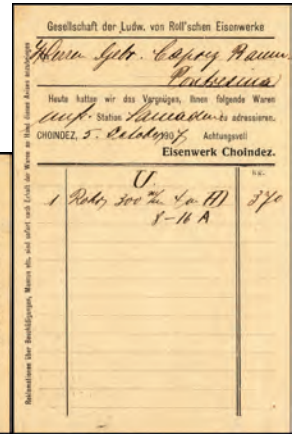 Gesellschaft der Ludw. von Roll'schen Eisenwerke
Herren Gebr. Caprez
Pontresina
Heute hatten wir das Vergnügen, Ihnen folgende Waren
Station Samaden zu adressieren.
CHOINDEZ, 5. October 1907 Achtungsvoll
Eisenwerk Choindez.
U.
kg.
1 Rohr 300 m/m 4 m 370
8-16 A
Reklamationen über Beschädigungen, Mancos etc. sind sofort nach Erhalt der Waren